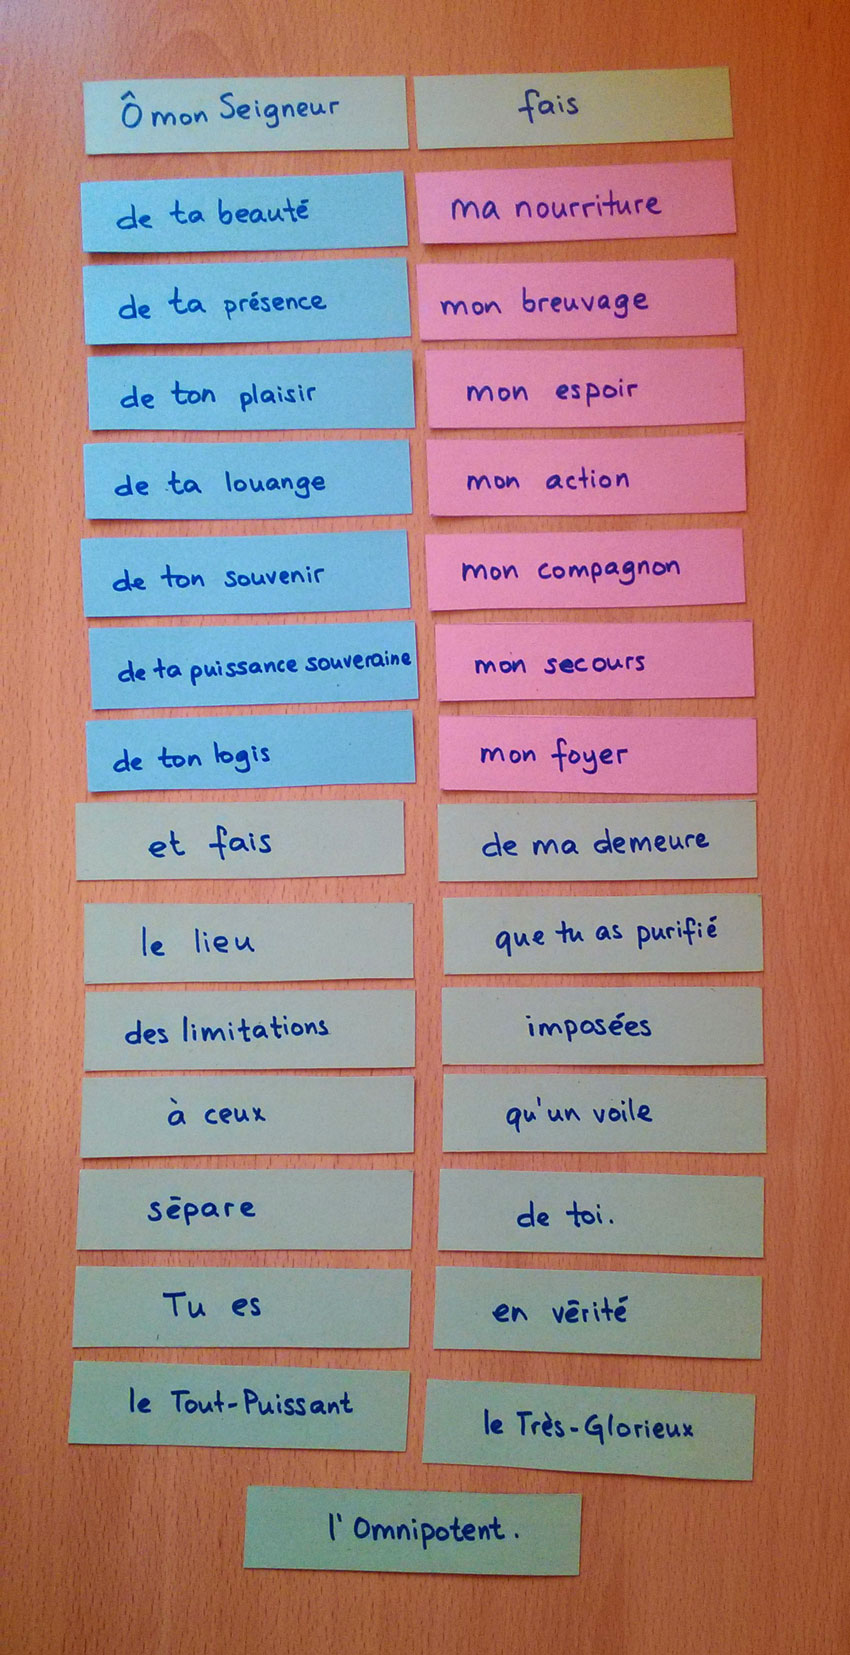 Ô mon Seigneur fais
de ta beauté ma nourriture
de ta présence mon breuvage
de ton plaisir mon espoir
de ta louange mon action
de ton souvenir mon compagnon
de ta puissance souveraine mon secours
de ton logis mon foyer
et fais de ma demeure
le lieu que tu as purifié
des limitations imposées
à ceux qu'un voile
sépare de toi.
Tu es en vérité
le Tout-Puissant le Très-Glorieux
l'Omnipotent.